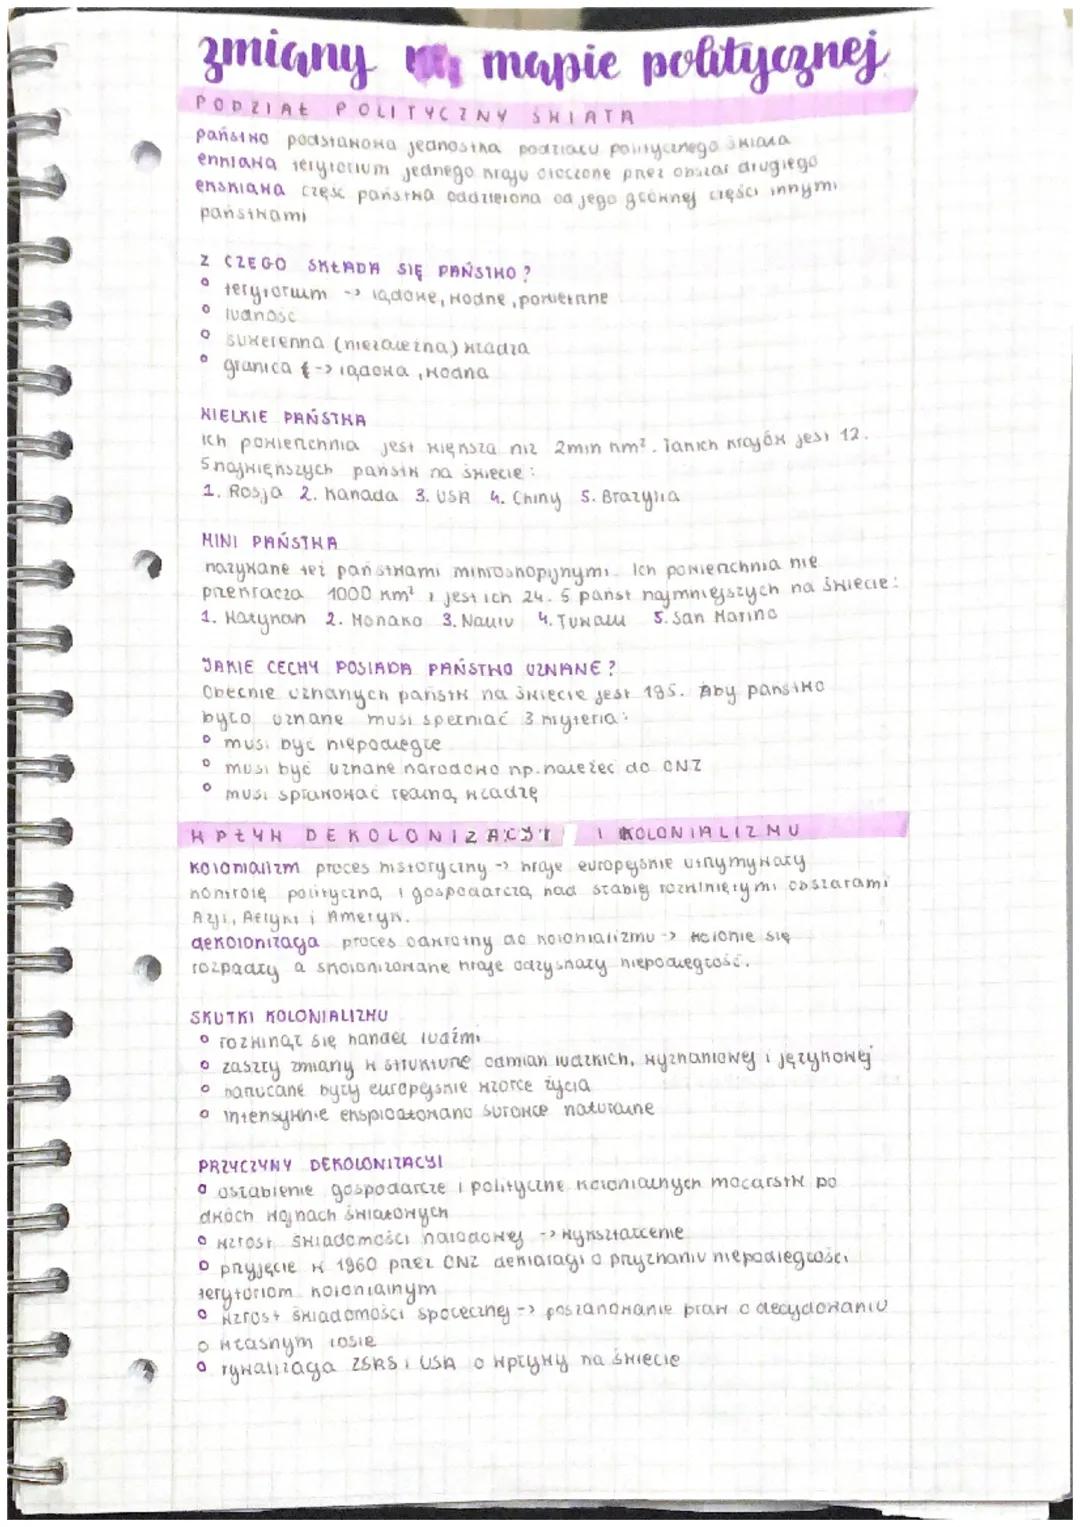 zmiany na mapie politycznej
PODZIAŁ POLITYCZNY ŚWIATA
państwo podstawowa jednostka podziału politycznego świata
enklawa terytorium jednego kraju otoczone przez obszar drugiego
eksklawa część państwa oddzielona od jego głównej części innymi
państwami
Z CZEGO SKŁADA SIĘ PAŃSTWO?
° terytorium -> lądowe, wodne, powietrzne
° ludność
° suwerenna (niezależna) władza
° granica -> lądowa, wodna
WIELKIE PAŃSTWA
Ich powierzchnia jest większa niż 2mln km². Takich krajów jest 12.
5 największych państw na świecie:
1. Rosja 2. Kanada 3. USA 4. Chiny 5. Brazylia
MINI PAŃSTWA
nazywane też państwami mikroskopijnymi. Ich powierzchnia nie
przekracza 1000 km² i jest ich 24. 5 państ najmniejszych na świecie:
1. Watykan 2. Monako 3. Nauru 4. Tuwalu 5. San Marino
JAKIE CECHY POSIADA PAŃSTWO UZNANE?
Obecnie uznanych państw na świecie jest 195. Aby państwo
było uznane musi spełniać 3 kryteria:
° musi być niepodległe
° musi być uznane narodowo np. należeć do ONZ
° musi sprawować realną władzę
WPŁYW DEKOLONIZACJI I KOLONIALIZMU
Kolonializm proces historyczny -> kraje europejskie utrzymywały
kontrolę polityczną i gospodarczą nad słabiej rozwiniętymi obszarami
Azji, Afryki i Ameryk.
dekolonizacja proces odwrotny do kolonializmu -> kolonie się
rozpadły a skolonizowane kraje odzyskały niepodległość.
SKUTKI KOLONIALIZMU
° rozwinął się handel ludźmi
° zaszły zmiany w strukturze odmian ludzkich, wyznaniowej i językowej
° narzucane były europejskie wzorce życia
° intensywnie eksploatowano surowce naturalne
PRZYCZYNY DEKOLONIZACJI
° osłabienie gospodarcze i polityczne kolonialnych mocarstw po
dwóch wojnach światowych
° wzrost świadomości narodowej -> wykształcenie
° przyjęcie w 1960 przez ONZ deklaracji o przyznaniu niepodległości
terytoriom kolonialnym
° wzrost świadomości społecznej -> poszanowanie praw o decydowaniu
o własnym losie
° rywalizacja ZSRS i USA o wpływy na świecie